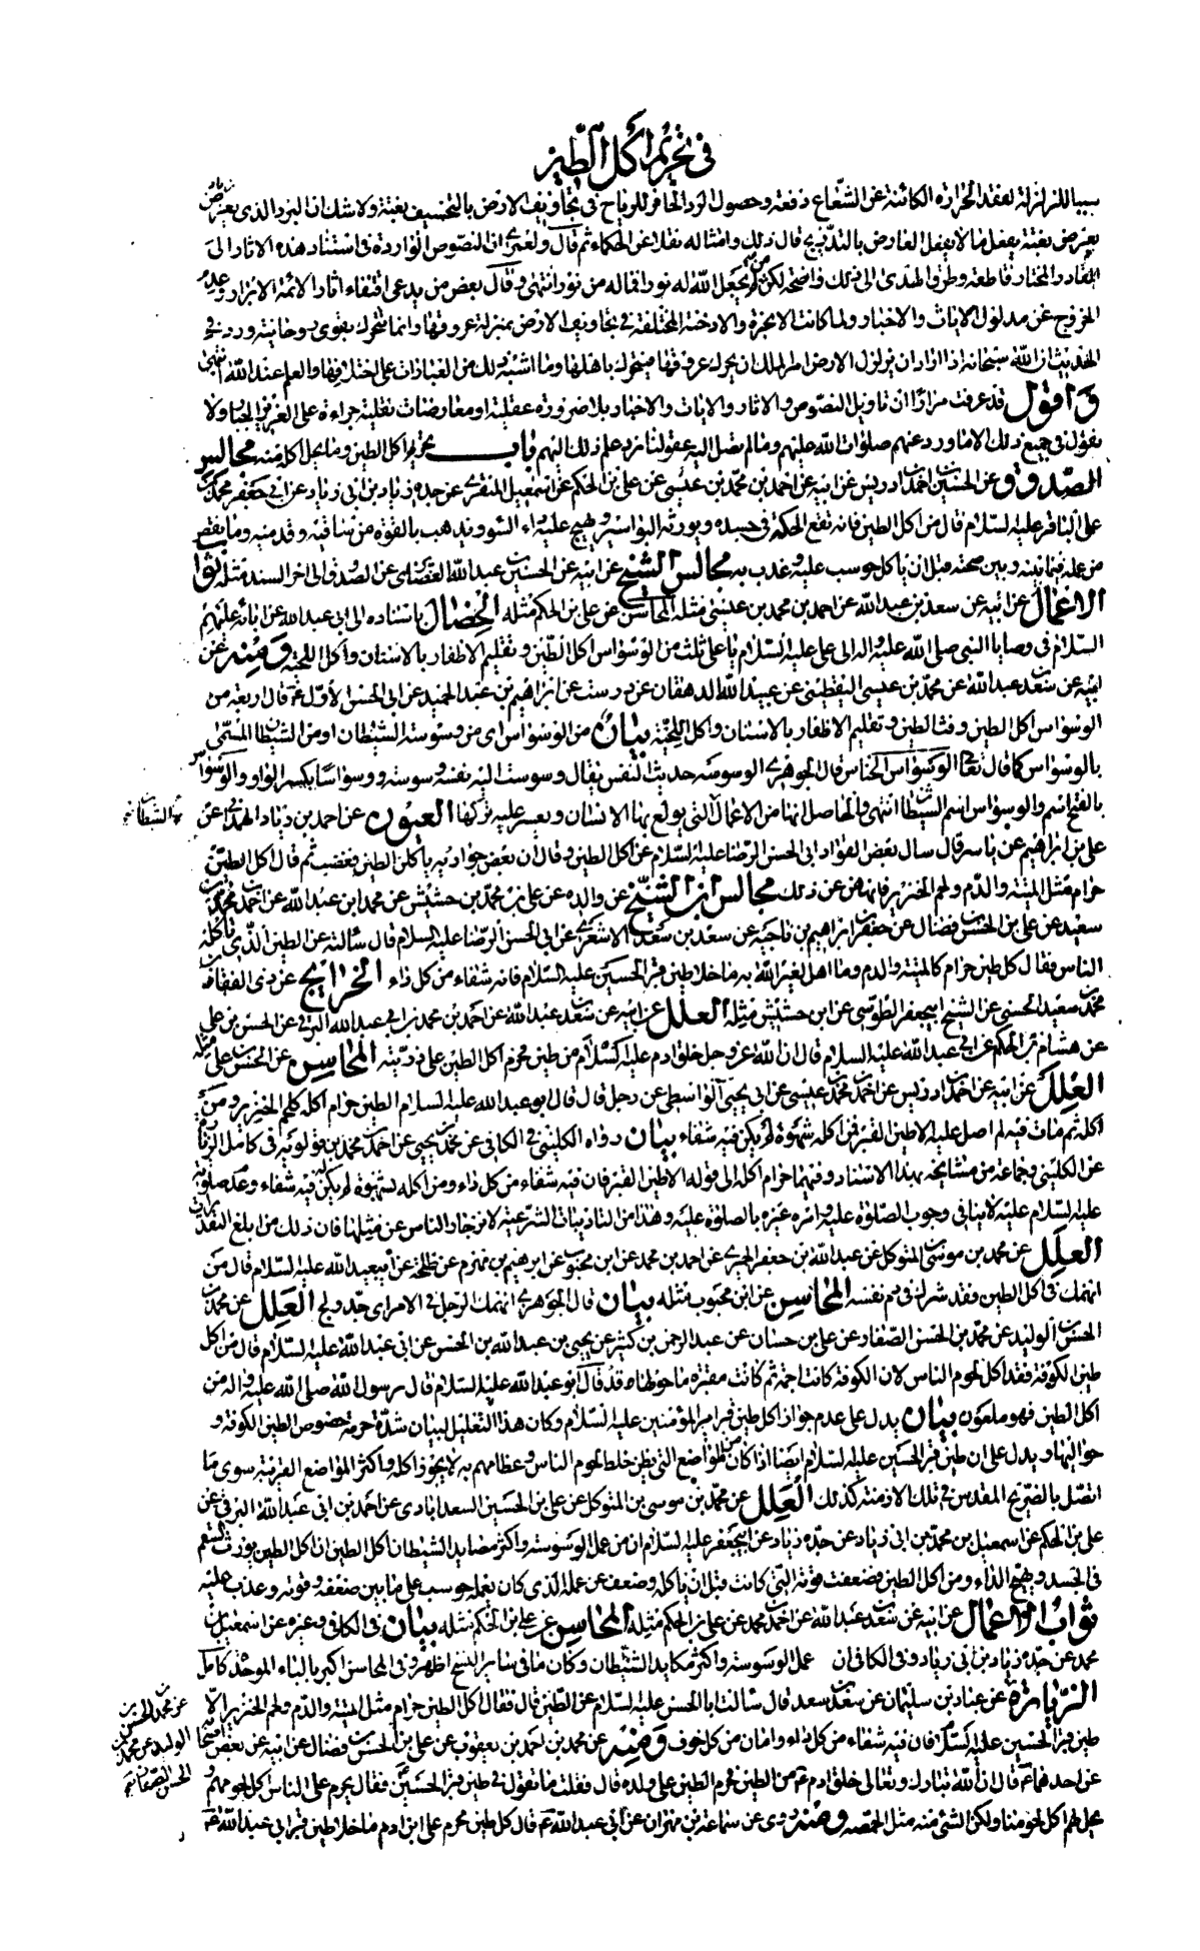 في تحريم أكل الطين
سببا للزلزلة لفقد الحرارة الكائنة عن الشعاع دفعة وحصول البرد الحافر للرياح في تجاويف الارض بالتحصيف بغتة ولا شك ان البرد الذي يعرض
يعرض بغتة يفعل ما لا يفعل العارض بالتدريج قال ذلك وامثاله نقلا عن الحكماء ثم قال ولعمري ان النصوص الواردة في استناد هذه الاثار الى
القادر المختار قاطعة وطرق الهدى الى ذلك واضحة لكن من لم يجعل الله له نورا فماله من نور انتهى وقال بعض من يدعي اقتفاء اثار الائمة الابرار وعدم
الخروج عن مدلول الايات والاخبار ولما كانت الابخرة والادخنة المختلفة في تجاويف الارض بمنزلة عروقها وانما تتحرك بقوى روحانية ورد في
الحديث ان الله سبحانه اذا اراد ان يزلزل الارض امر الملك ان يحرك عروقها فيتحرك باهلها وما اشبه ذلك من العبارات على اختلافها والعلم عند الله انتهى
واقول قد عرفت مرارا ان تاويل النصوص والاثار والايات والاخبار بلا ضرورة عقلية او معارضات نقلية جراءة على العزيز الجبار ولا
نقول في جميع ذلك الا ما ورد عنهم صلوات الله عليهم وما لم تصل اليه عقولنا نرد علم ذلك اليهم باب تحريم اكل الطين وما يحل اكله منه مجالس
الصدوق عن الحسين بن احمد بن ادريس عن ابيه عن احمد بن محمد بن عيسى عن علي بن الحكم عن اسمعيل المنقري عن جده زياد بن ابي زياد عن ابي جعفر محمد بن
علي الباقر عليه السلام قال من اكل الطين فانه تقع الحكة في جسده ويورثه البواسير ويهيج عليه داء السوء ويذهب بالقوة من ساقيه وقدميه وما نقص
من عمله فيما بينه وبين صحته قبل ان ياكل حوسب عليه وعذب به مجالس الشيخ عن ابيه عن الحسين بن عبيد الله الغضائري عن الصدوق الى اخر السند مثله ثواب
الاعمال عن ابيه عن سعد بن عبد الله عن احمد بن محمد بن عيسى مثله المحاسن عن علي بن الحكم مثله الخصال باسناده الى ابي عبد الله عن ابائه عليهم
السلام في وصايا النبي صلى الله عليه واله الى علي عليه السلام يا علي ثلث من الوسواس اكل الطين وتقليم الاظفار بالاسنان واكل اللحية ومنه عن
ابيه عن سعد بن عبد الله عن محمد بن عيسى اليقطيني عن عبيد الله الدهقان عن درست عن ابراهيم بن عبد الحميد عن ابي الحسن الاول ع قال اربعة من
الوسواس اكل الطين وفت الطين وتقليم الاظفار بالاسنان واكل اللحية بيان من الوسواس اى من وسوسة الشيطان او من الشيطان المسمى
بالوسواس كما قال تعالى الوسواس الخناس قال الجوهري الوسوسه حديث النفس يقال وسوست اليه نفسه وسوسة ووسواسا بكسر الواو والوسواس
بالفتح اسم والوسواس اسم الشيطان انتهى والحاصل انها من الاعمال التي يولع بها الانسان ويعسر عليه تركها العيون عن احمد بن زياد الهمداني عن
علي بن ابراهيم عن ياسر قال سال بعض القواد ابي الحسن الرضا عليه السلام عن اكل الطين وقال ان بعض جواريه ياكلن الطين فغضب ثم قال اكل الطين
حرام مثل الميتة والدم ولحم الخنزير فانههن عن ذلك مجالس ابن الشيخ عن والده عن علي بن محمد بن حشيش عن محمد ابن عبد الله عن احمد بن محمد بن
سعيد عن علي بن الحسن بن فضال عن جعفر بن ابراهيم بن ناجية عن سعد بن سعد الاشعري عن ابي الحسن الرضا عليه السلام قال سالته عن الطين الذي ياكله
الناس فقال كل طين حرام كالميتة والدم وما اهل لغير الله به ما خلا طين قبر الحسين عليه السلام فانه شفاء من كل داء الخرايج عن ذي الفقار بن
محمد بن معبد الحسني عن الشيخ ابيجعفر الطوسي عن ابن حشيش مثله العلل عن ابيه عن سعد بن عبد الله عن احمد بن محمد بن ابي عبد الله البرقي عن الحسن بن علي
عن هشام بن الحكم عن ابي عبد الله عليه السلام قال ان الله عز وجل خلق ادم عليه السلام من طين فحرم اكل الطين على ذريته المحاسن عن الحسن بن علي مثله
العلل عن ابيه عن احمد بن ادريس عن احمد بن محمد بن عيسى عن ابي يحيى الواسطي عن رجل قال قال ابو عبد الله عليه السلام الطين حرام اكله كلحم الخنزير ومن
اكله ثم مات فيه لم اصل عليه الا طين القبر فمن اكله شهوة لم يكن فيه شفاء بيان رواه الكليني في الكافي عن محمد بن يحيى عن احمد بن محمد بن قولويه في كامل الزيارة
عن الكليني وجماعة من مشايخه بهذا الاسناد وفيهما حرام اكله الى قوله الا طين القبر فان فيه شفاء من كل داء ومن اكله بشهوة لم يكن له فيه شفاء وعدم صلوته
عليه السلام عليه لا ينافي وجوب الصلوة عليه وامره غيره بالصلوة عليه وهذا من التاديبات الشرعية لانزجار الناس عن مثلها فان ذلك من ابلغ التعذيرات
العلل عن محمد بن موسى بن المتوكل عن عبد الله بن جعفر الحميري عن احمد بن محمد عن ابن محبوب عن ابراهيم بن مهزم عن طلحة عن ابيعبد الله عليه السلام قال من
انهمك في اكل الطين فقد شرك في دم نفسه المحاسن عن ابن محبوب مثله بيان قال الجوهري انهمك الرجل في الامر اى جد ولج العلل عن محمد بن
الحسن بن الوليد عن محمد بن الحسن الصفار عن علي بن حسان عن عبد الرحمن بن كثير عن يحيى بن عبد الله بن الحسن عن ابي عبد الله عليه السلام قال من اكل
طين الكوفة فقد اكل لحوم الناس لان الكوفة كانت اجمة ثم كانت مقبرة ما حولها وقد قال ابو عبد الله عليه السلام قال رسول الله صلى الله عليه واله من
اكل الطين فهو ملعون بيان يدل على عدم جواز اكل طين قبر امير المؤمنين عليه السلام وكان هذا التعليل لبيان شدة حرمة خصوص الطين الكوفة و
حواليها ويدل على ان طين قبر الحسين عليه السلام ايضا اذا كان من المواضع التي يظن خلط لحوم الناس وعظامهم به لا يجوز اكله واكثر المواضع القريبة سوى ما
اتصل بالضريح المقدس في تلك الازمنة كذلك العلل عن محمد بن موسى بن المتوكل عن علي بن الحسين السعدابادي عن احمد بن ابي عبد الله البرقي عن
علي بن الحكم عن اسمعيل بن محمد بن ابي زياد عن جده زياد عن ابيجعفر عليه السلام ان من عمل الوسوسة واكثر مصايد الشيطان اكل الطين ان اكل الطين يورث السقم
في الجسد ويهيج الداء ومن اكل الطين فضعفت قوته التي كانت قبل ان ياكله وضعف عن عمله الذي كان يعمله حوسب على ما بين ضعفه وقوته وعذب عليه
ثواب الاعمال عن ابيه عن سعد بن عبد الله عن احمد بن محمد عن علي بن الحكم مثله المحاسن عن علي بن الحكم مثله بيان في الكافي وغيره عن اسمعيل بن
محمد عن جده زياد بن ابي زياد وفي الكافي ان عمل الوسوسة واكثر مكايد الشيطان وكان ما في ساير النسخ اظهر وفي المحاسن اكبر بالباء الموحدة كامل
الزيارة عن عباد بن سليمان عن سعد بن سعد قال سالت ابا الحسن عليه السلام عن الطين قال فقال اكل الطين حرام مثل الميتة والدم ولحم الخنزير الا
طين قبر الحسين عليه السلام فان فيه شفاء من كل داء وامان من كل خوف ومنه عن محمد بن احمد بن يعقوب عن علي بن الحسن بن فضال عن ابيه عن بعض اصحابنا
عن احدهما ع قال ان الله تبارك وتعالى خلق ادم ع من الطين فحرم الطين على ولده قال فقلت ما تقول في طين قبر الحسين ع فقال يحرم على الناس اكل لحومهم و
يحل لهم اكل لحومنا ولكن الشئ منه مثل الحمصة ومنه روى عن سماعة بن مهران عن ابي عبد الله ع قال كل طين محرم على ابن ادم ما خلا طين قبر ابي عبد الله ع
عن محمد بن الحسن بن
الوليد عن محمد بن
الحسن الصفار